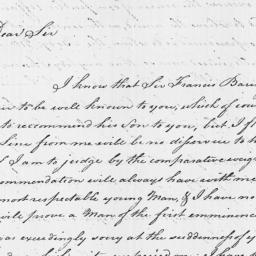 Dear Sir
I know that Sir Francis Bari
to be well known to you, which of cou
to recommend his Son to you, but I f
Line from me will be no disservice to h
I am to judge by the comparative weig
ommendation will always have with me
most respectable young Man, & I have no
will prove a Man of the first emminence
was exceedingly sorry at the suddenness of y